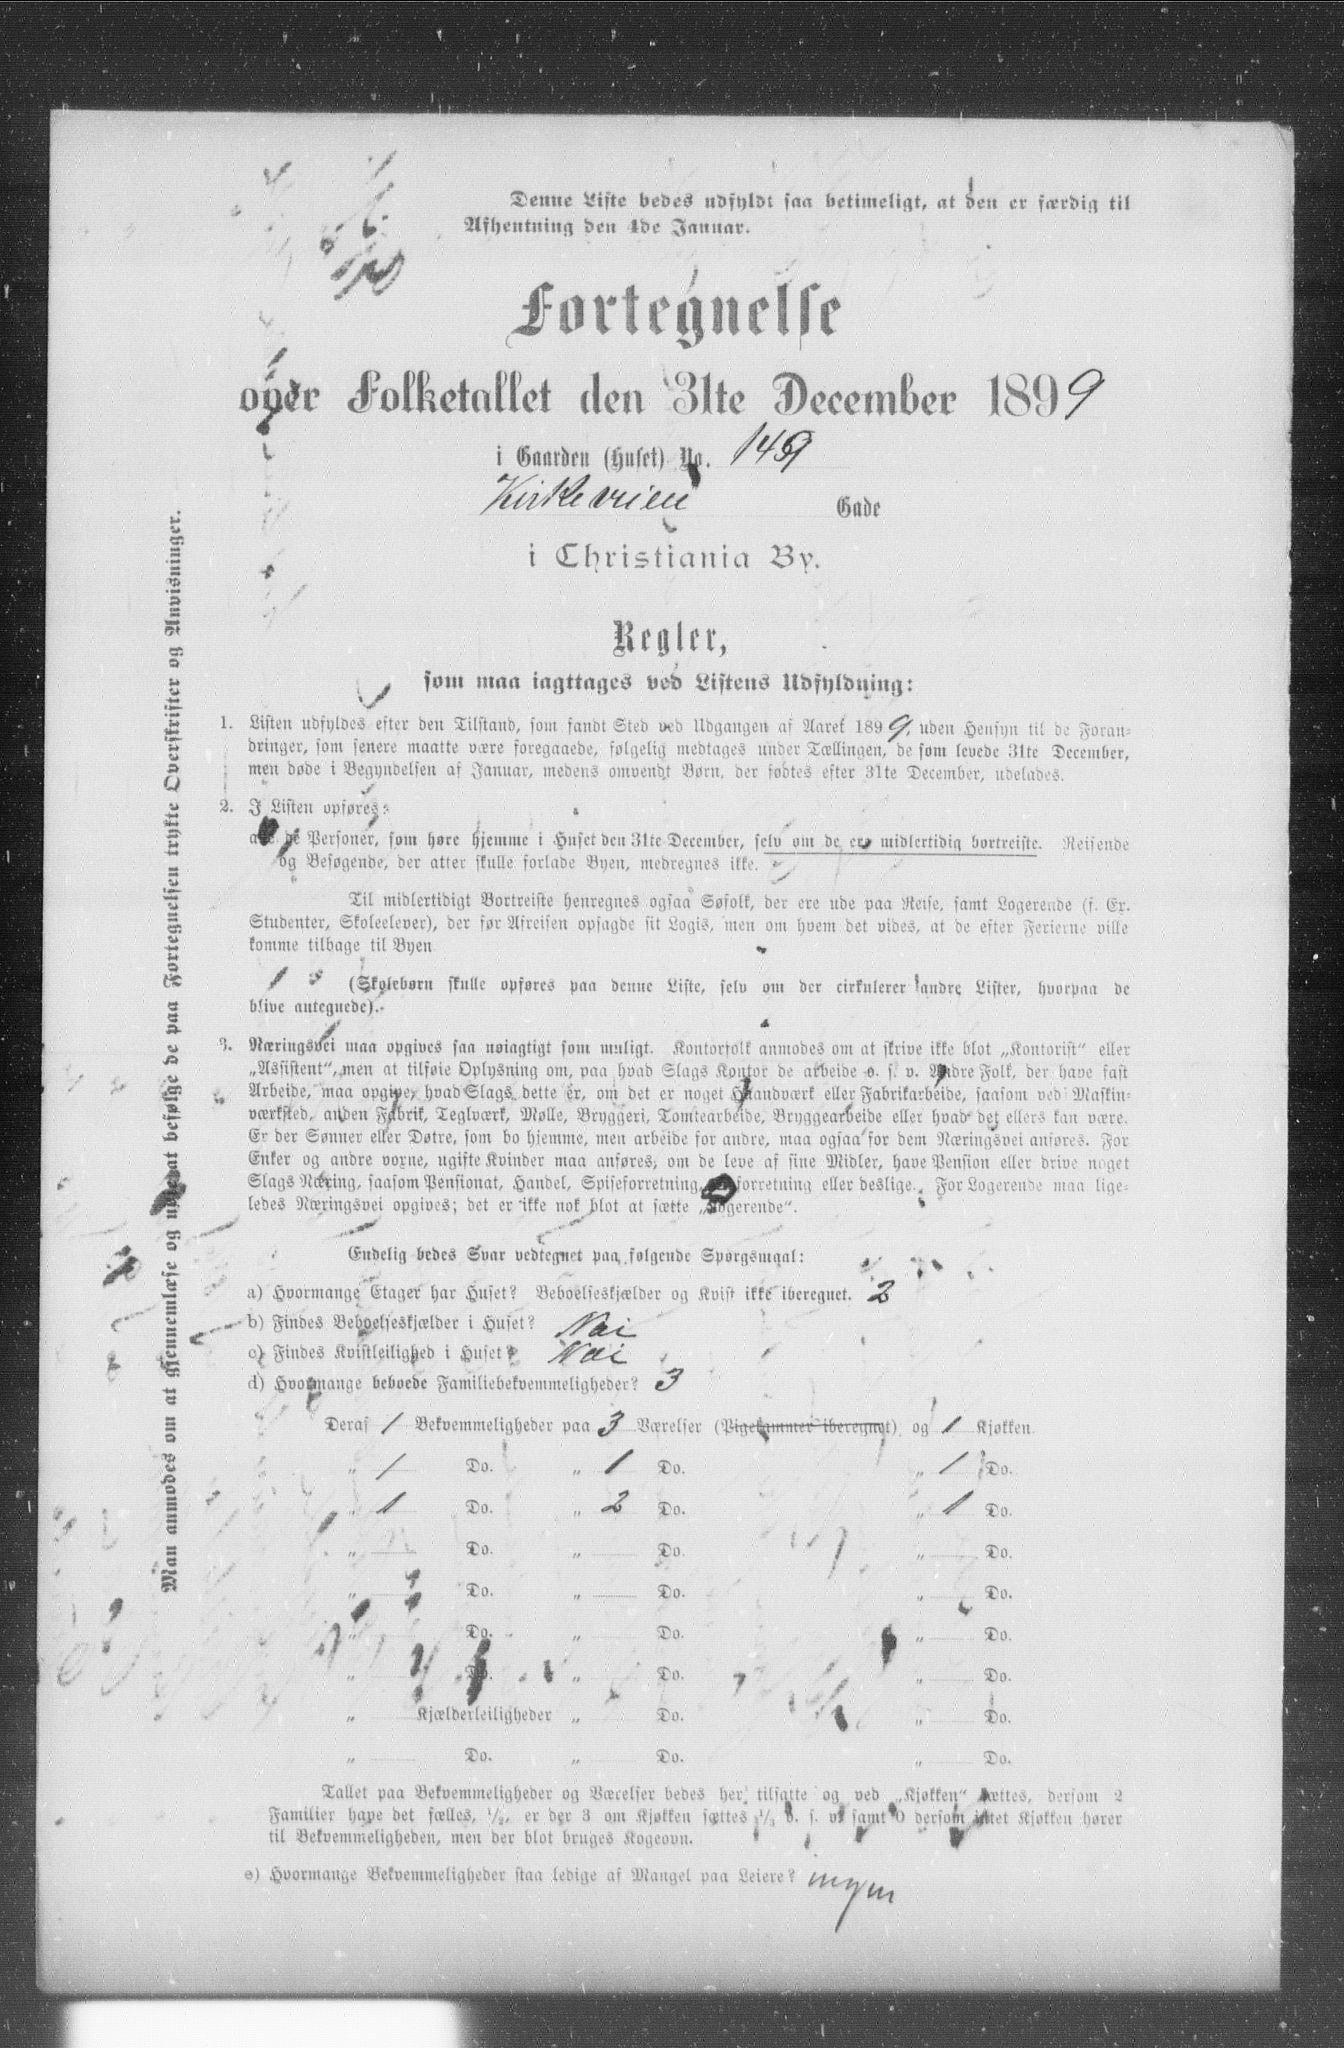 Denne Liste bedes udfyldt saa betimeligt, at den er færdig til
Afhentning den 4de Januar.
Fortegnelse
over Folketallet den 31te December 1899
i Gaarden (Huset) No. 149
Kirkeveien Gade
i Christiania By.
Regler,
som maa iagttages ved Listens Udfyldning:
1. Listen udfyldes efter den Tilstand, som fandt Sted ved Udgangen af Aaret 1899, uden Hensyn til de Foran-
dringer, som senere maatte være foregaaede, følgelig medtages under Tællingen, de som levede 31te December,
men døde i Begyndelsen af Januar, medens omvendt Børn, der fødtes efter 31te December, udelades.
2. I Listen opføres:
alle de Personer, som høre hjemme i Huset den 31te December, selv om de ere midlertidig bortreiste. Reisende
og Besøgende, der atter skulle forlade Byen, medregnes ikke.
Til midlertidigt Bortreiste henregnes ogsaa Søfolk, der ere ude paa Reise, samt Logerende (f. Ex.
Studenter, Skoleelever), der før Afreisen opsagde sit Logis, men om hvem det vides, at de efter Ferierne ville
komme tilbage til Byen
(Skolebørn skulle opføres paa denne Liste, selv om der cirkulerer andre Lister, hvorpaa de
blive antegnede).
3. Næringsvei maa opgives saa nøiagtigt som muligt. Kontorfolk anmodes om at skrive ikke blot „Kontorist" eller
„Assistent", men at tilføie Oplysning om, paa hvad Slags Kontor de arbeide o. s. v. Andre Folk, der have fast
Arbeide, maa opgive, hvad Slags dette er, om det er noget Haandværk eller Fabrikarbeide, saasom ved Maskin-
værksted, anden Fabrik, Teglværk, Mølle, Bryggeri, Tomtearbeide, Bryggearbeide eller hvad det ellers kan være.
Er der Sønner eller Døtre, som bo hjemme, men arbeide for andre, maa ogsaa for dem Næringsvei anføres. For
Enker og andre voxne, ugifte Kvinder maa anføres, om de leve af sine Midler, have Pension eller drive noget
Slags Næring, saasom Pensionat, Handel, Spiseforretning, forretning eller deslige. For Logerende maa lige-
ledes Næringsvei opgives; det er ikke nok blot at sætte „Logerende".
Endelig bedes Svar vedtegnet paa følgende Spørgsmaal:
a) Hvormange Etager har Huset? Beboelseskjælder og Kvist ikke iberegnet. 2
b) Findes Beboelseskjælder i Huset? Nei
c) Findes Kvistleilighed i Huset? Nei
d) Hvormange beboede Familiebekvemmeligheder? 3
Deraf 1 Bekvemmeligheder paa 3 Værelser (Pigekammer iberegnet) og 1 Kjøkken
„ 1 Do. „ 1 Do. „ 1 Do.
„ 1 Do. „ 2 Do. „ 1 Do.
„ Do. „ Do. „ Do.
„ Do. „ Do. „ Do.
„ Do. „ Do. „ Do.
„ Do. „ Do. „ Do.
„ Kjælderleiligheder „ Do. „ Do.
„ Do. „ Do. „ Do.
Tallet paa Bekvemmeligheder og Værelser bedes her tilsatte og ved „Kjøkken" sættes, dersom 2
Familier have det fælles, 1/2, er der 3 om Kjøkken sættes 1/3 o. s. v. samt 0 dersom intet Kjøkken hører
til Bekvemmeligheden, men der blot bruges Kogeovn.
e) Hvormange Bekvemmeligheder staa ledige af Mangel paa Leiere? ingen
Man anmodes om at gjennemlæse og nøiagt befølge de paa Fortegnelsen trykte Overskrifter og Anvisninger.